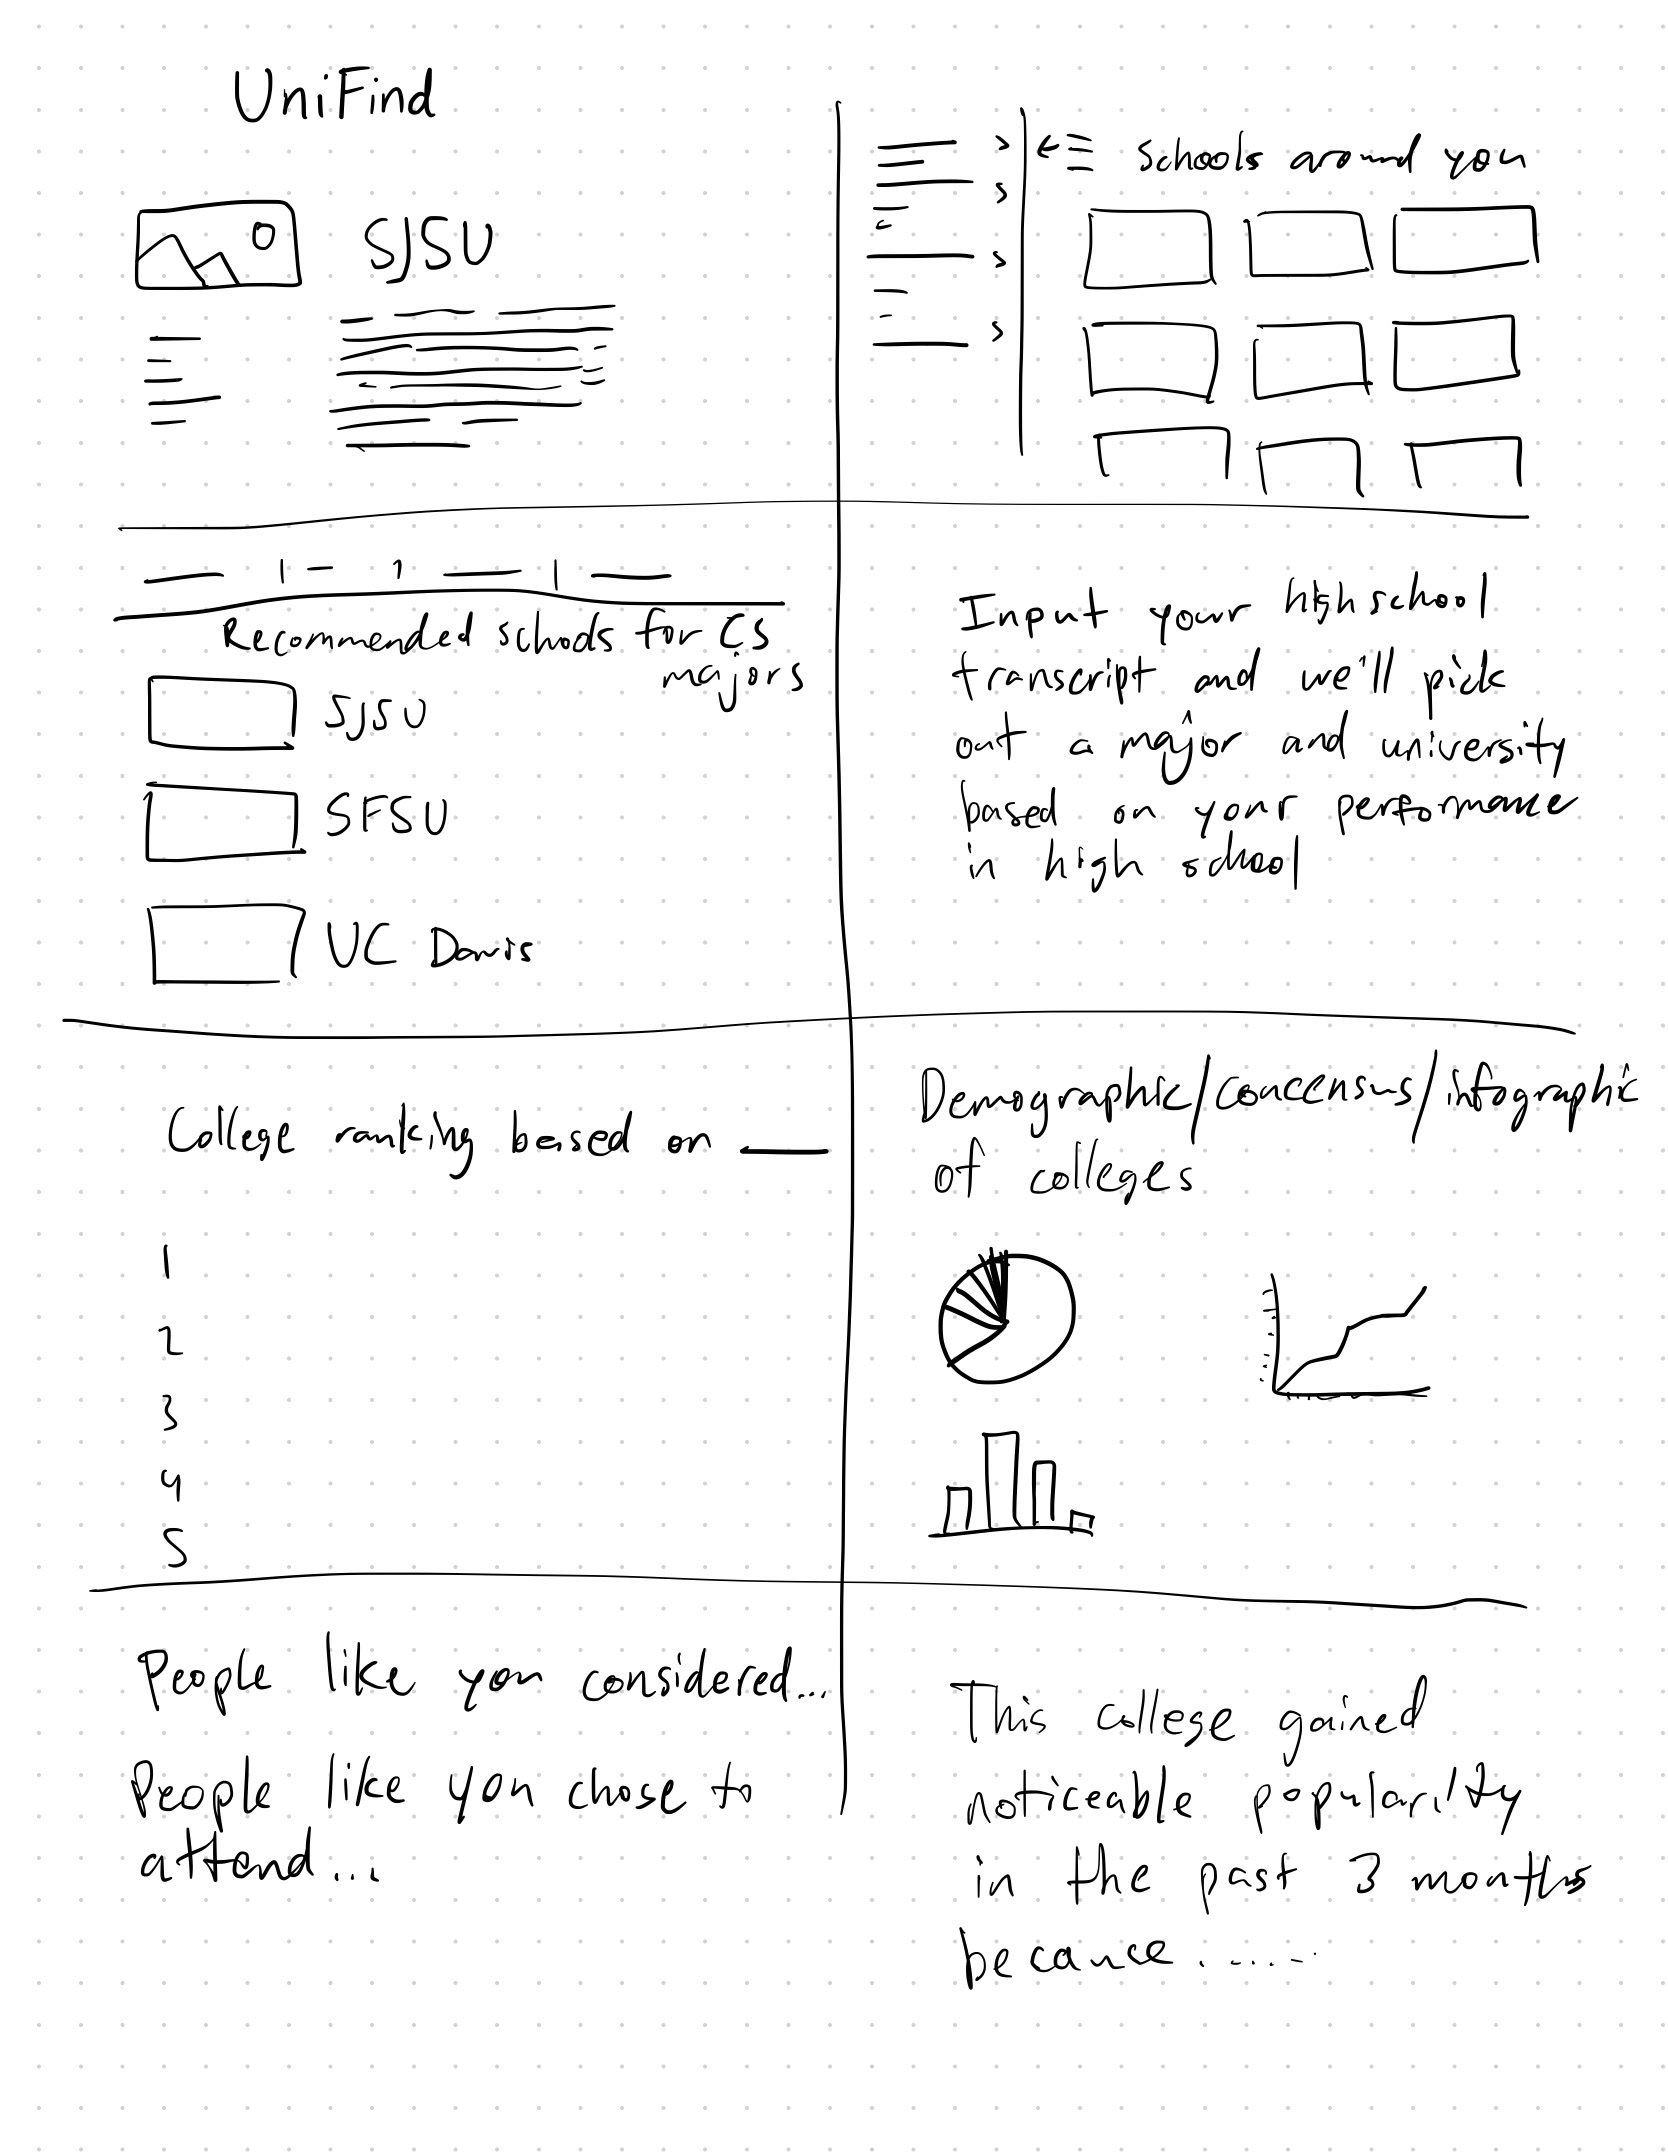 UniFind
SJSU
Schools around you
Recommended schools for CS
majors
SJSU
SFSU
UC Davis
Input your highschool
transcript and we'll pick
out a major and university
based on your performance
in high school
College ranking based on
1
2
3
4
5
Demographic/concensus/infographic
of colleges
People like you considered...
People like you chose to
attend...
This college gained
noticeable popularity
in the past 3 months
becauce......